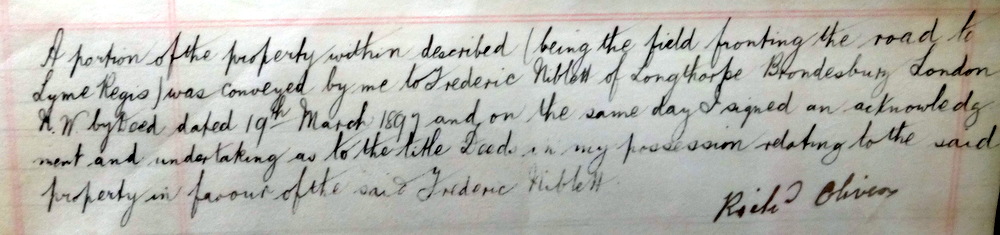 A portion of the property within described (being the field fronting the road to
Lyme Regis) was conveyed by me to Frederic Niblett of Longthorpe Brondesbury London
N.W by Deed dated 19th March 1897 and on the same day I signed an acknowledg
ment and undertaking as to the title Deeds in my possession relating to the said
property in favour of the said Frederic Niblett.
Richd Oliver